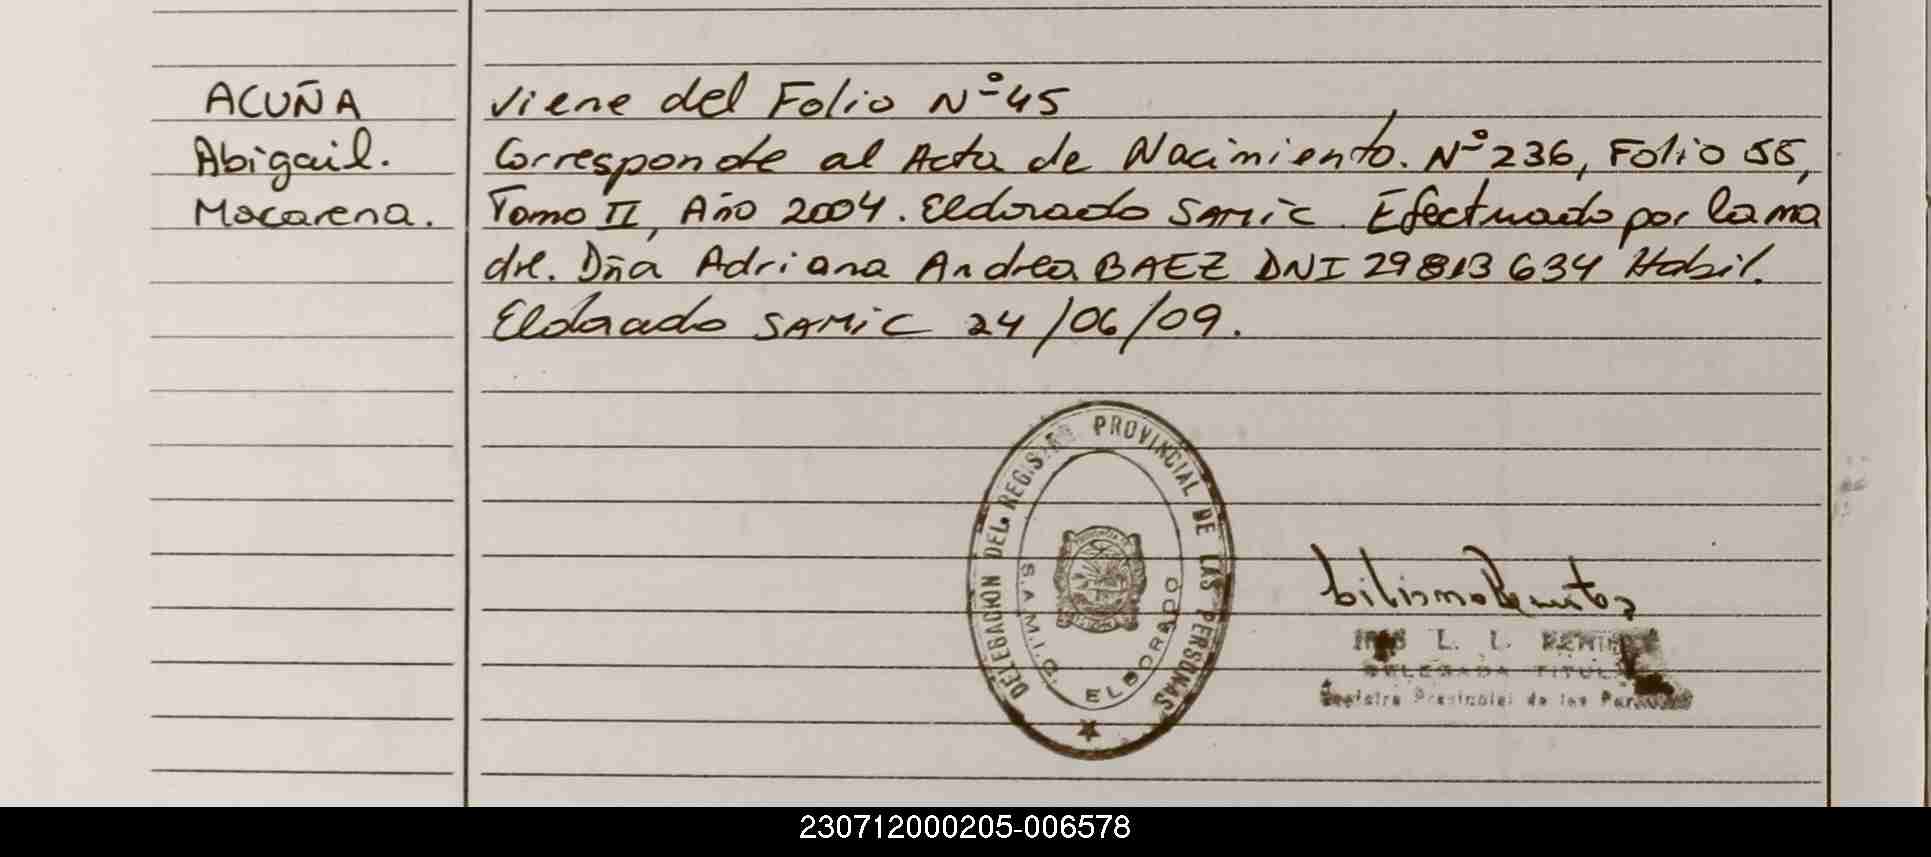 ACUÑA
Abigail.
Macarena.
Viene del Folio Nº 45
Corresponde al Acta de Nacimiento. Nº 236, Folio 58,
Tomo II, Año 2004. Eldorado SAMiC. Efectuado por la ma
dre. Dña Adriana Andrea BAEZ DNI 29813634 Habil.
Eldorado SAMiC 24/06/09.
DELEGACION DEL REGISTRO PROVINCIAL DE LAS PERSONAS
S.A.M.I.C. ELDORADO
L. L.
DELEGADA TITULAR
Registro Provincial de las Personas
230712000205-006578